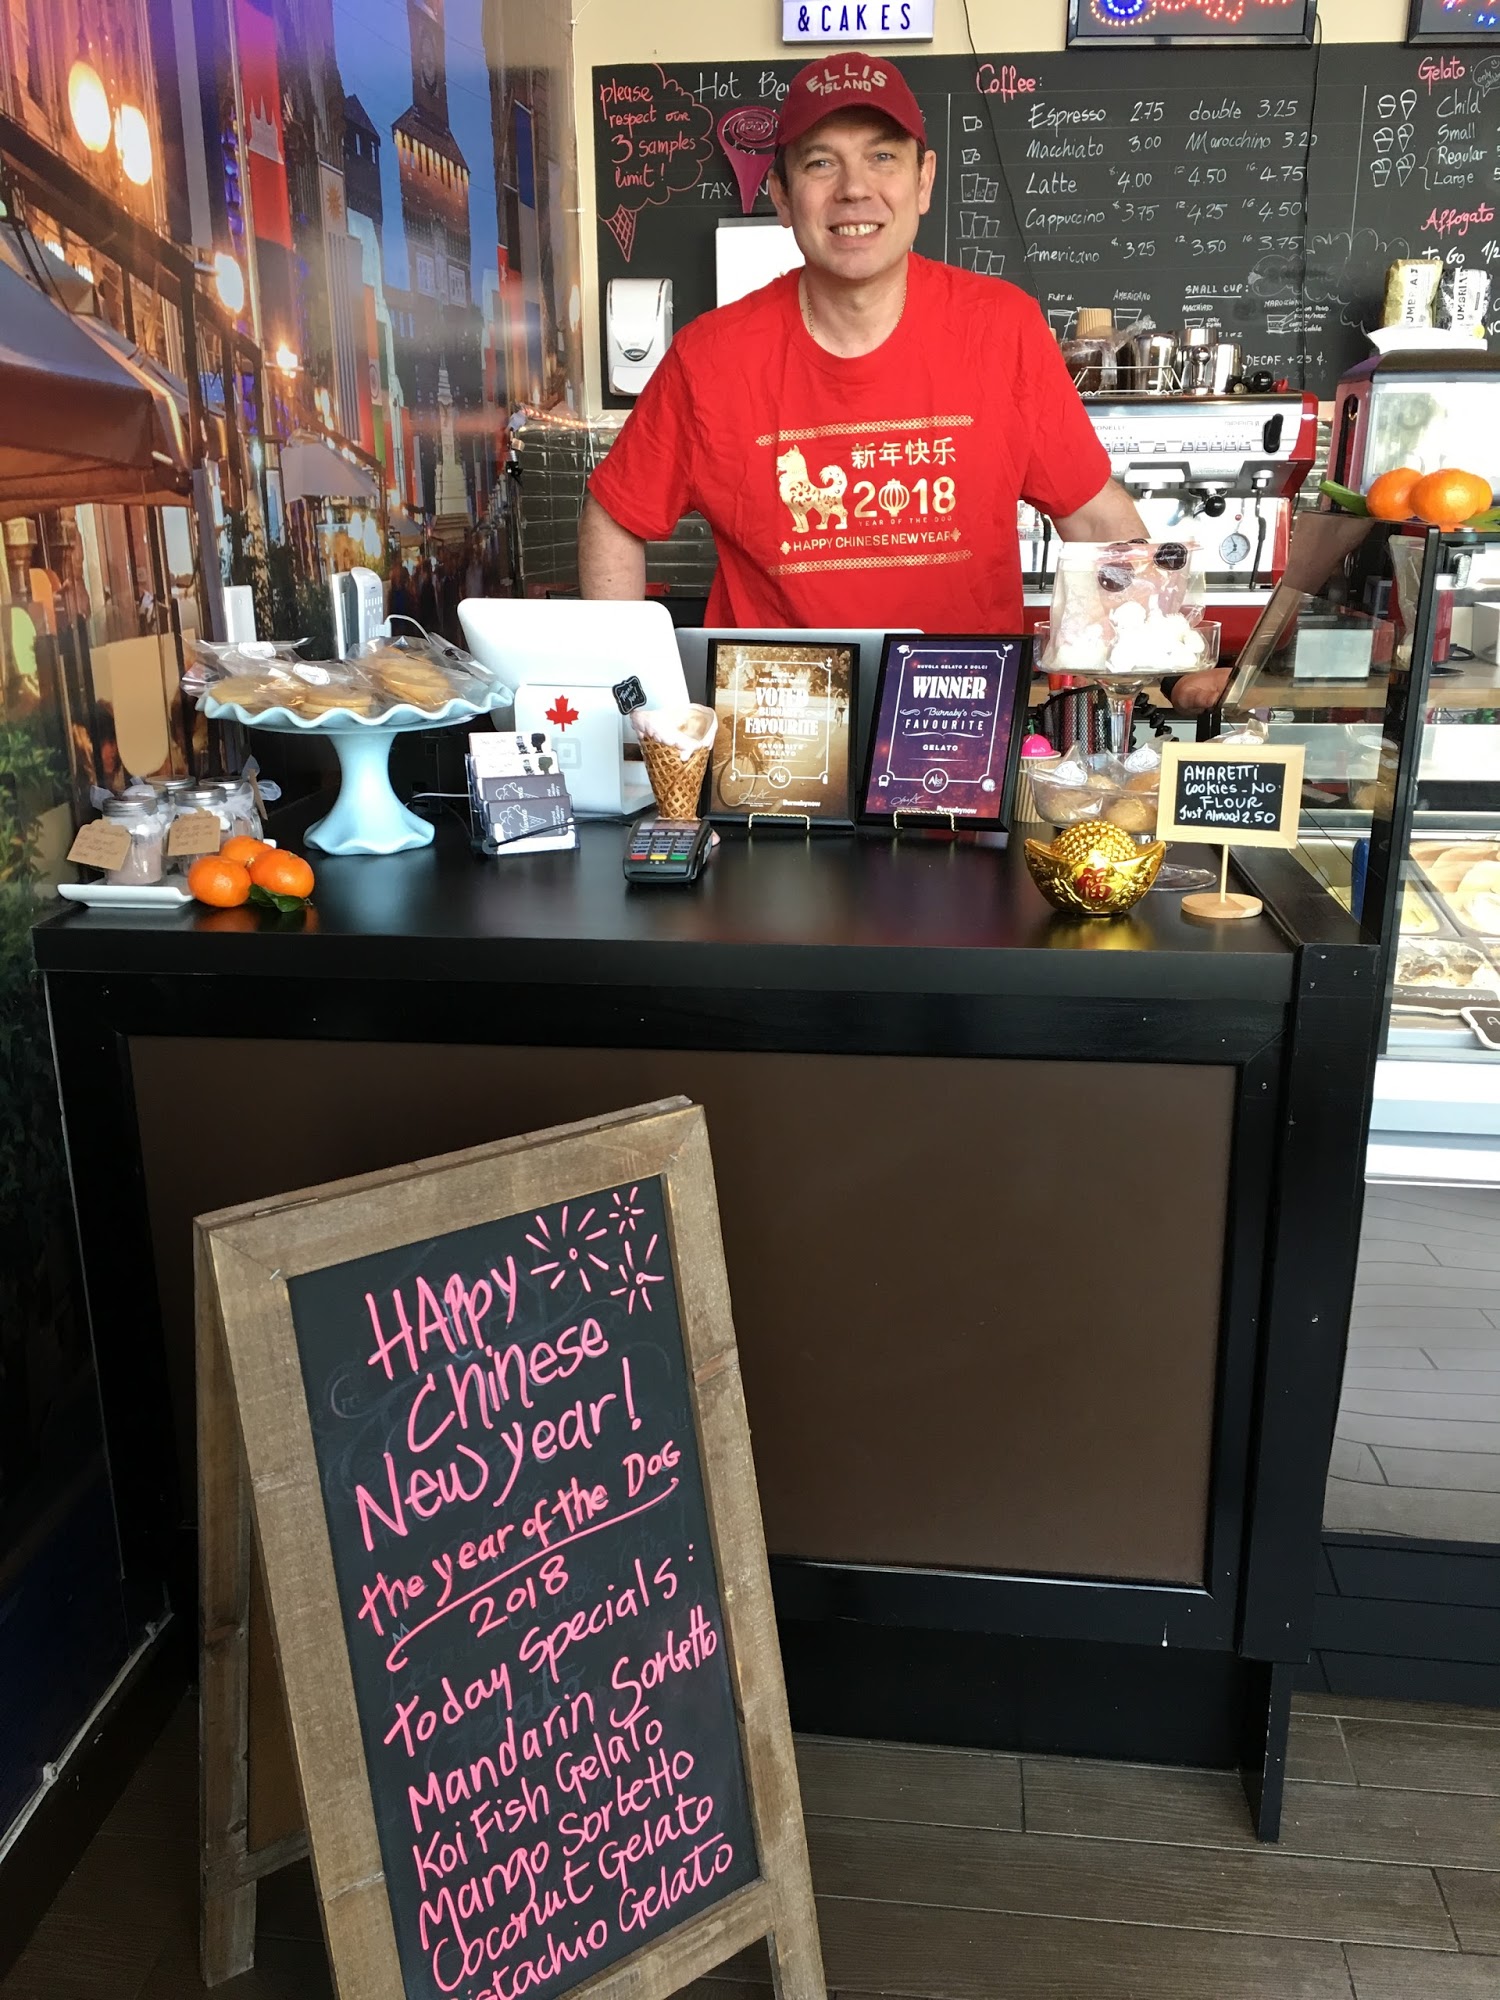 & CAKES
please
respect our
3 samples
limit!
Hot
TAX
ELLIS
ISLAND
Coffee:
Espresso 2.75 double 3.25
Macchiato 3.00 Marocchino 3.20
Latte 8 4.00 12 4.50 16 4.75
Cappuccino 8 3.75 12 4.25 16 4.50
Americano 8 3.25 12 3.50 16 3.75
AMERICANO
SMALL CUP:
MACCHIATO
DECAF. +25 ¢.
Gelato:
Child
Small
Regular
Large
Affogato
To Go 1/2
新年快乐
2018
YEAR OF THE DOG
HAPPY CHINESE NEW YEAR
GELATO & DOLCI
VOTED
BURNABY'S
FAVOURITE
FAVOURITE
GELATO
Burnabynow
NUVOLA GELATO & DOLCI
WINNER
Burnaby's
FAVOURITE
GELATO
Burnabynow
AMARETTI
Cookies - NO
FLOUR
Just Almond 2.50
福
HAppy
Chinese
New year!
the year of the DOG
2018
today specials:
Mandarin Sorbetto
Koi Fish Gelato
Mango Sorbetto
Coconut Gelato
Pistachio Gelato